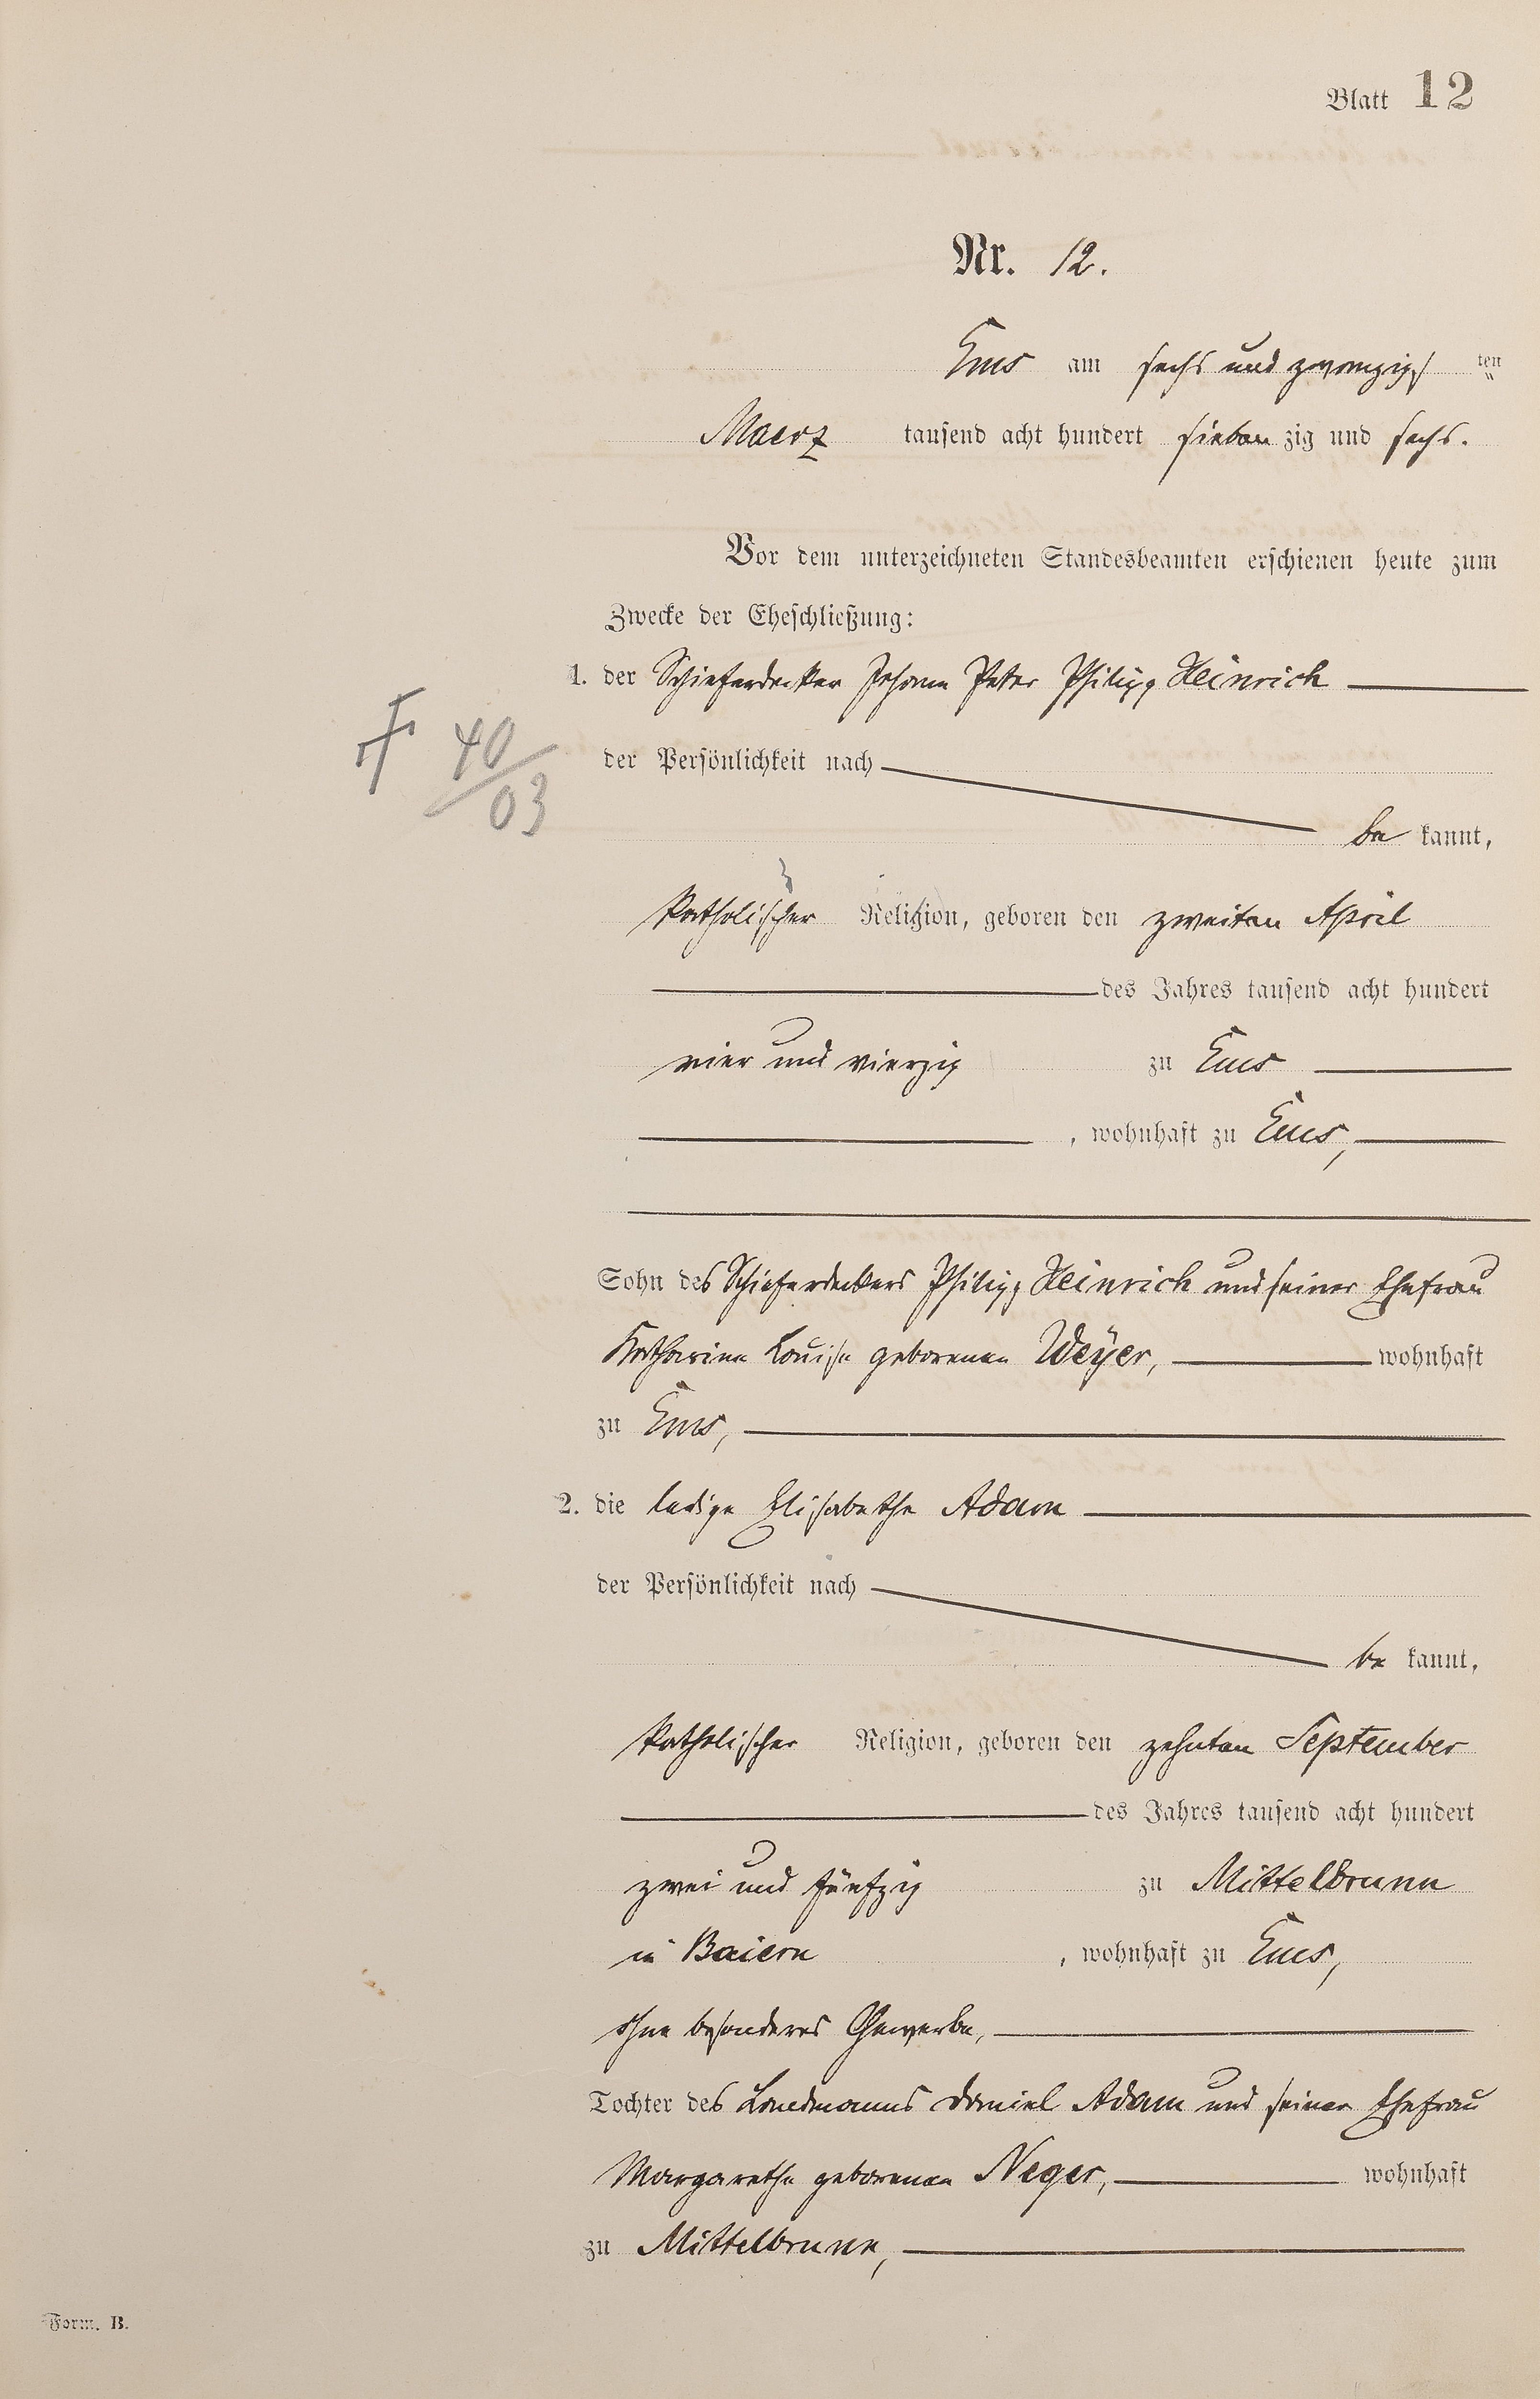 Blatt 12
Nr. 12.
Ems am sechs und zwanzigs ten
Maerz tausend acht hundert sieben zig und sechs.
Vor dem unterzeichneten Standesbeamten erschienen heute zum
Zwecke der Eheschließung:
1. der Schieferdecker Johann Peter Philipp Heinrich
der Persönlichkeit nach
F 40/03
be kannt,
katholischer Religion, geboren den zweiten April
des Jahres tausend acht hundert
vier und vierzig zu Ems
, wohnhaft zu Ems,
Sohn des Schieferdeckers Philipp Heinrich und seiner Ehefrau
Katharine Louise geborenen Weÿer, wohnhaft
zu Ems,
2. die ledige Elisabethe Adam
der Persönlichkeit nach
be kannt,
katholischer Religion, geboren den zehnten September
des Jahres tausend acht hundert
zwei und fünfzig zu Mittelbrunn
in Baiern , wohnhaft zu Ems,
ohne besonderes Gewerbe,
Tochter des Landmanns Daniel Adam und seiner Ehefrau
Margarethe geborenen Neger, wohnhaft
zu Mittelbrunn,
Form. B.